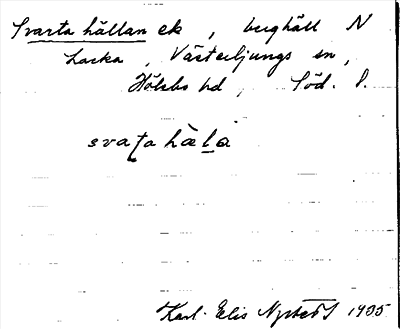 Svarta hällan ek, berghäll N
Lacka, Västerljungs sn,
Hölebo hd, Söd. l.
svaʈa hèla
Karl-Elis 1935